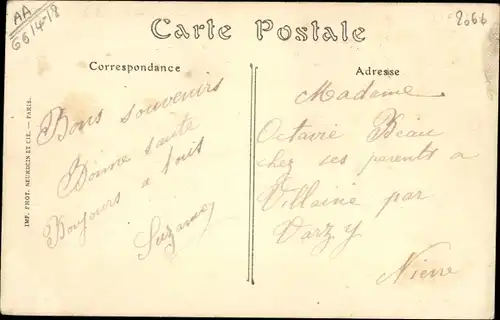 AA
6614-18
2066
Carte Postale
Correspondance
Adresse
Bons souvenirs
Bonne santé
Bonjours a tous
Suzanne
Madame
Octavie Beau
chez ses parents a
Villaine par
Varzy
Nièvre
IMP. PHOT. NEURDEIN ET CIE. — PARIS.